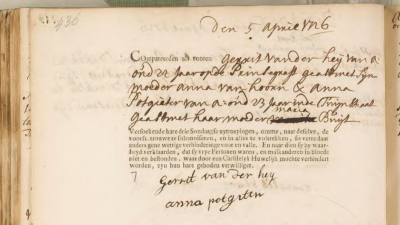 436
Den 5 April 1726
Compareerden als vooren Gerrit Vander heij van A:
oud 22 Jaar op de Geassisteert
moeder Anna van Hoorn & Anna
Potgieter van A: oud 23 Jaar inde Tuijnstraat
Geassisteert haar moeder maria Bruijt
Versoekende hare drie Sondaegse uytroepingen, omme, naar deselve, de
voorsz. trouwe te solemniseren, en in alles te voltrekken, so verre daar
anders gene wettige verhinderinge voor en valle. En naar dien sy by waar-
heyd verklaarden, dat sy vrye Personen waren, en malkanderen in bloede
niet en bestonden, waar door een Christelyk Huwelyk mochte verhindert
worden, zyn hun hare geboden verwilliget.
Gerret van der hey
anna potgieten